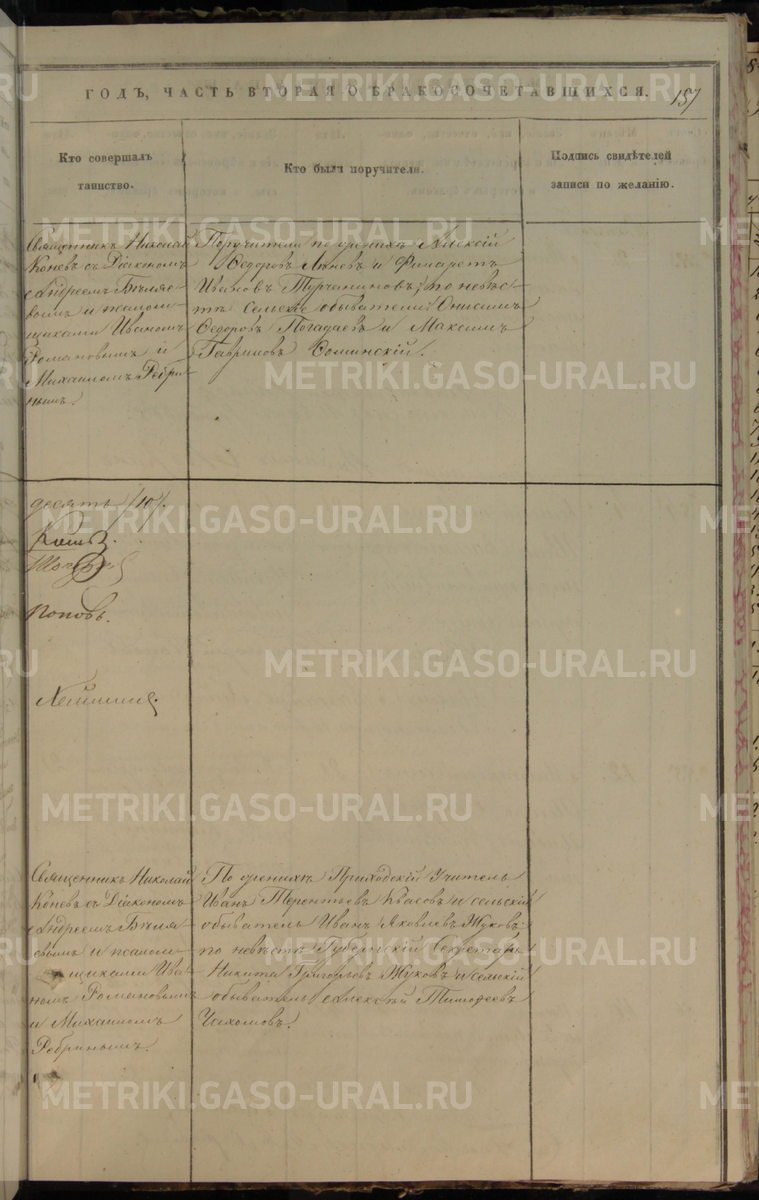 ГОДЪ, ЧАСТЬ ВТОРАЯ О БРАКОСОЧЕТАВШИХСЯ. 157
Кто совершалъ
таинство.
Кто были поручители.
Подпись свидѣтелей
записи по желанію.
Священникъ Николай
Коневъ съ Діакономъ
Андреемъ Бѣляе-
вымъ и псалом-
щиками Иваномъ
Романовымъ и
Михаиломъ Ребри-
нымъ.
Поручители по женихѣ Алексій
Ѳедоровъ и Филаретъ
Ивановъ Турчаниновъ; по невѣс-
тѣ Сельскіе обыватели: Онисимъ
Ѳедоровъ Погадаевъ и Максимъ
Гавриловъ
десять /10/.
Поповъ.
Священникъ Николай
Коневъ съ Діакономъ
Андреемъ Бѣляе-
вымъ и псалом-
щиками Ива-
номъ Романовымъ
и Михаиломъ
Ребринымъ.
По женихѣ Приходскій Учитель
Иванъ Терентьевъ Квасовъ и сельскій
обыватель Иванъ Яковлевъ Жуковъ:
по невѣстѣ Губернскій Секретарь
Никита Григорьевъ Жуковъ и сельскій
обыватель Алексѣй Тимофеевъ
METRIKI.GASO-URAL.RU